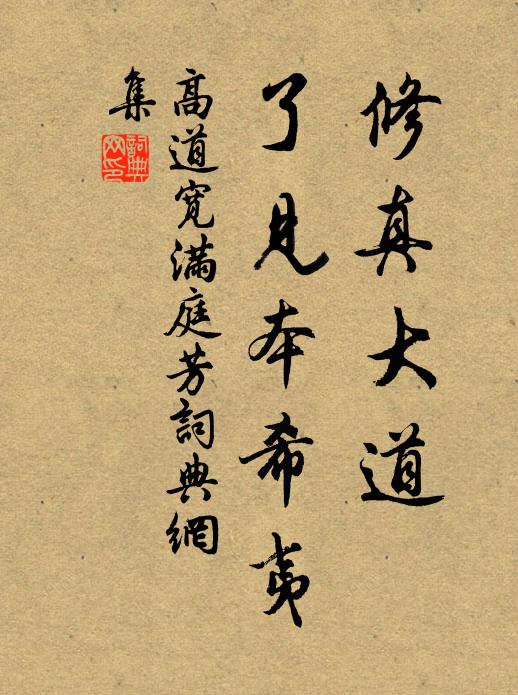 修真大道
了見本希夷
高道寬滿庭芳詞典網
集
詞典
网印